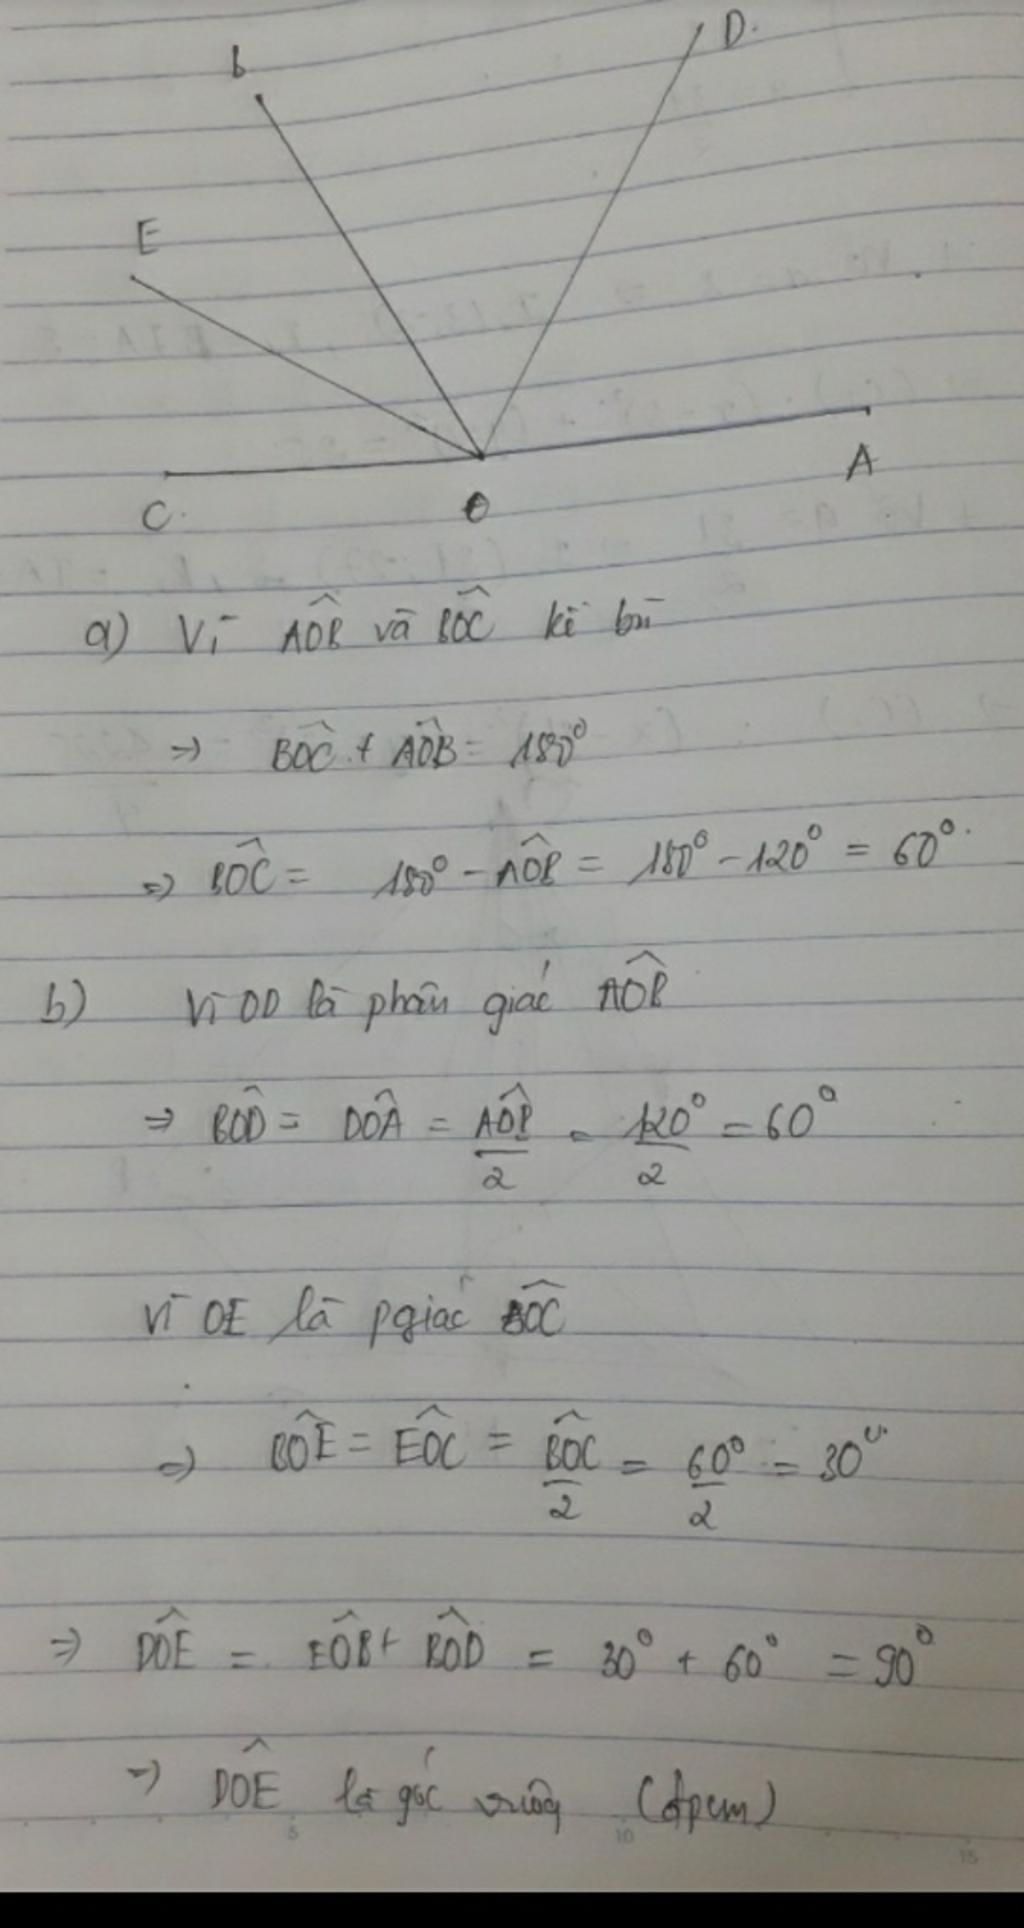 b
D.
E
A
C.
O
a) Vì AÔB và BÔC kề bù
=> BÔC + AÔB = 180°
=> BÔC = 180° - AÔB = 180° - 120° = 60°.
b) Vì OD là phân giác AÔB
=> BÔD = DÔA = AÔB/2 = 120°/2 = 60°
Vì OE là pgiác BÔC
=> BÔE = EÔC = BÔC/2 = 60°/2 = 30°
=> DÔE = EÔB + BÔD = 30° + 60° = 90°
=> DÔE là góc vuông (đpcm)
5 10 15